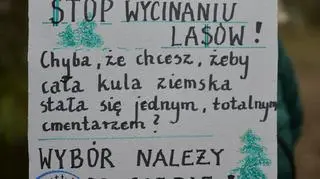 STOP WYCINANIU
LASÓW!
Chyba, że chcesz, żeby
cała kula ziemska
stała się jednym, totalnym
cmentarzem?
WYBÓR NALEŻY